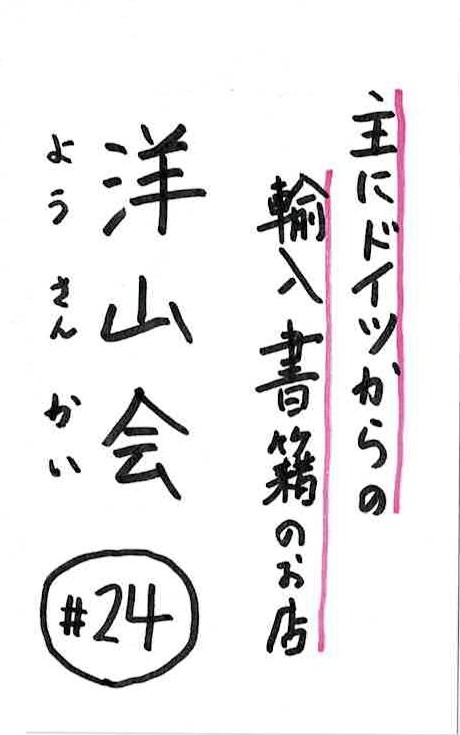 主にドイツからの
輸入書籍のお店
洋山会
ようさんかい
#24